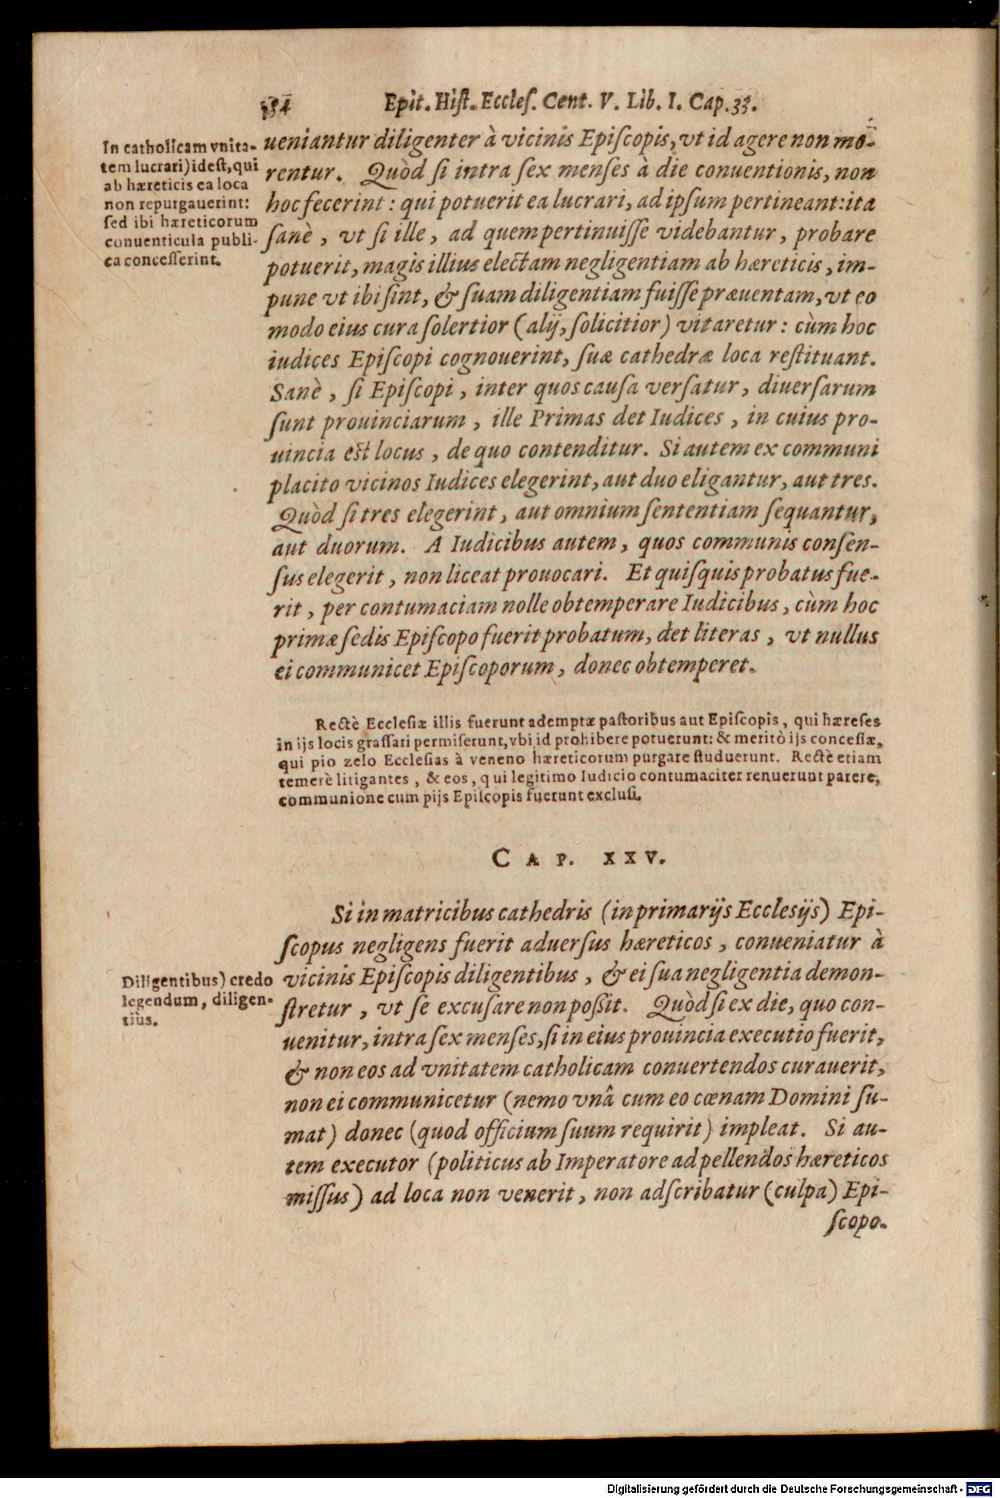 154 Epit. Hist. Eccles. Cent. V. Lib. I. Cap. 33.
In catholicam vnita-
tem lucrari) idest, qui
ab hæreticis ea loca
non repurgauerint:
sed ibi hæreticorum
conuenticula publi-
ca concesserint.
ueniantur diligenter à vicinis Episcopis, vt id agere non mo-
rentur. Quòd si intra sex menses à die conuentionis, non
hoc fecerint: qui potuerit ea lucrari, ad ipsum pertineant: ita
sanè, vt si ille, ad quem pertinuisse videbantur, probare
potuerit, magis illius electam negligentiam ab hæreticis, im-
pune vt ibi sint, & suam diligentiam fuisse præuentam, vt eo
modo eius cura solertior (alij, solicitior) vitaretur: cùm hoc
iudices Episcopi cognouerint, suæ cathedræ loca restituant.
Sanè, si Episcopi, inter quos causa versatur, diuersarum
sunt prouinciarum, ille Primas det Iudices, in cuius pro-
uincia est locus, de quo contenditur. Si autem ex communi
placito vicinos Iudices elegerint, aut duo eligantur, aut tres.
Quòd si tres elegerint, aut omnium sententiam sequantur,
aut duorum. A Iudicibus autem, quos communis consen-
sus elegerit, non liceat prouocari. Et quisquis probatus fue-
rit, per contumaciam nolle obtemperare Iudicibus, cùm hoc
primæ sedis Episcopo fuerit probatum, det literas, vt nullus
ei communicet Episcoporum, donec obtemperet.
Rectè Ecclesiæ illis fuerunt ademptæ pastoribus aut Episcopis, qui hæreses
in ijs locis grassari permiserunt, vbi id prohibere potuerunt: & meritò ijs concessæ,
qui pio zelo Ecclesias à veneno hæreticorum purgare studuerunt. Rectè etiam
temerè litigantes, & eos, qui legitimo Iudicio contumaciter renuerunt parere,
communione cum pijs Episcopis fuerunt exclusi.
CAP. XXV.
Si in matricibus cathedris (in primarijs Ecclesijs) Epi-
scopus negligens fuerit aduersus hæreticos, conueniatur à
vicinis Episcopis diligentibus, & ei sua negligentia demon-
stretur, vt se excusare non possit. Quòd si ex die, quo con-
uenitur, intra sex menses, si in eius prouincia executio fuerit,
& non eos ad vnitatem catholicam conuertendos curauerit,
non ei communicetur (nemo vnâ cum eo cœnam Domini su-
mat) donec (quod officium suum requirit) impleat. Si au-
tem executor (politicus ab Imperatore ad pellendos hæreticos
missus) ad loca non venerit, non adscribatur (culpa) Epi-
scopo.
Diligentibus) credo
legendum, diligen-
tiùs.
Digitalisierung gefördert durch die Deutsche Forschungsgemeinschaft - DFG